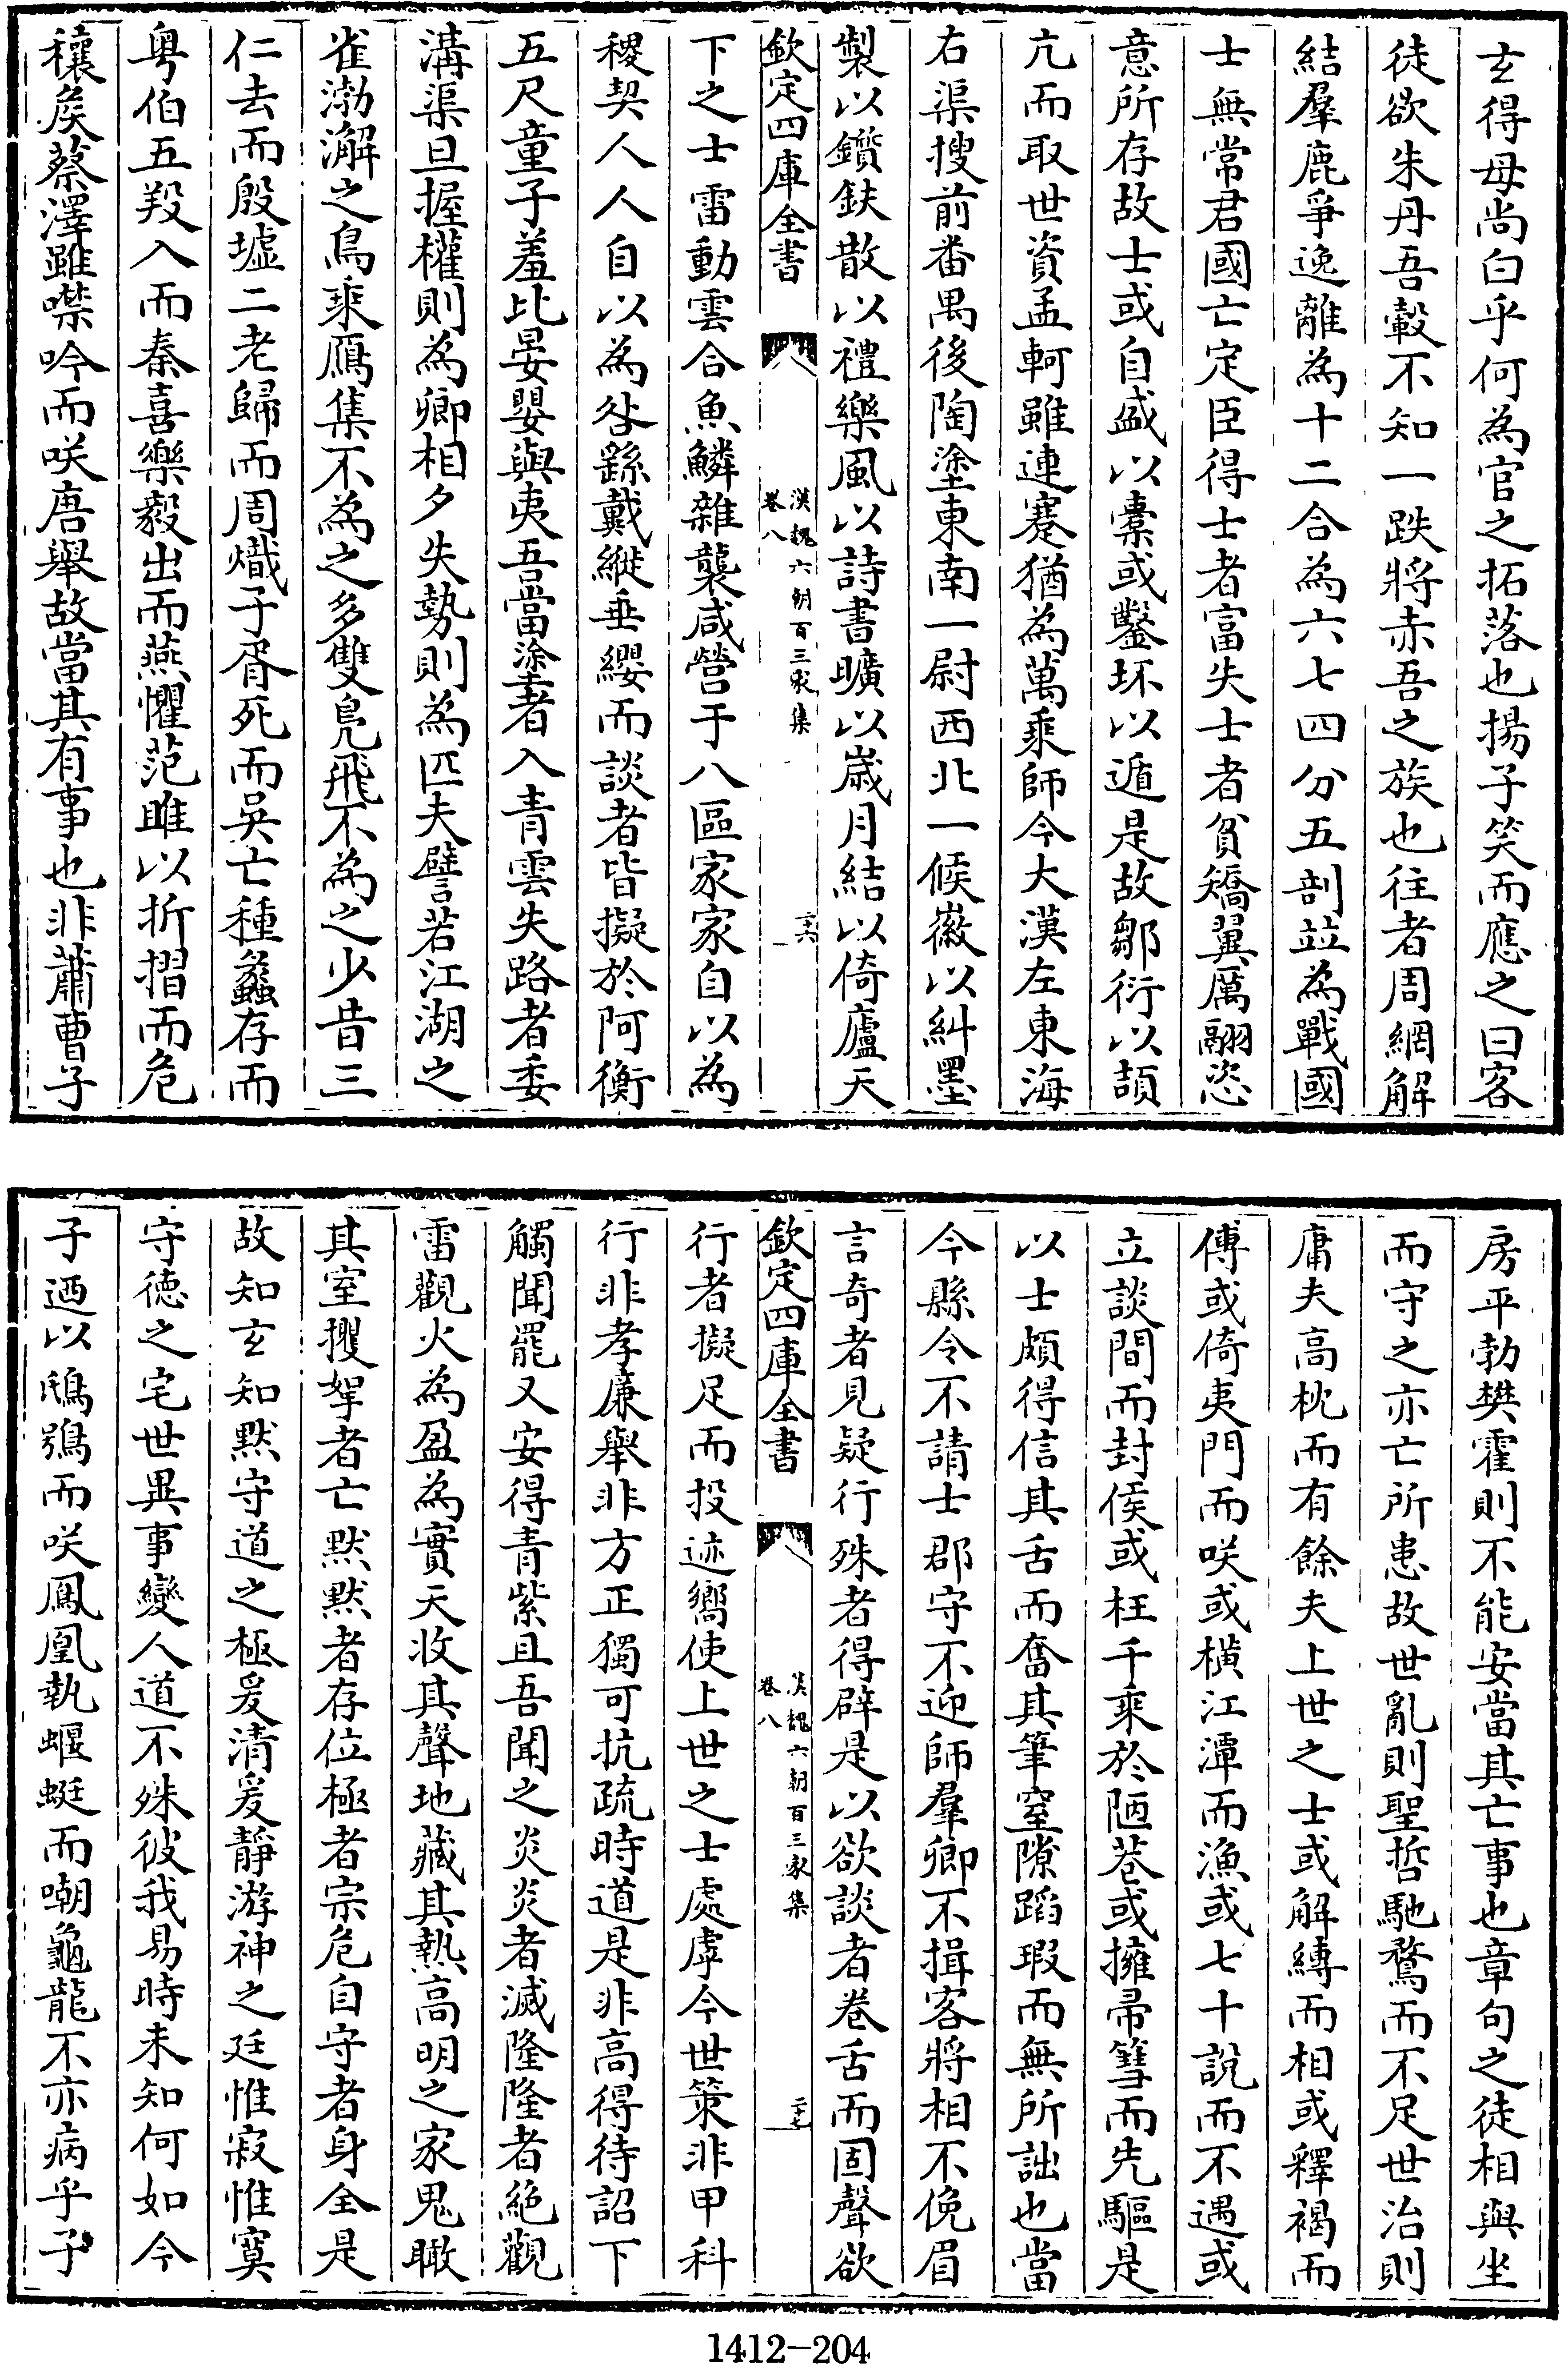 玄得母尚白乎何為官之拓落也揚子笑而應之曰客
徒欲朱丹吾轂不知一跌將赤吾之族也往者周網解
結羣鹿爭逸離為十二合為六七四分五剖並為戰國
士無常君國亡定臣得士者富失士者貧矯翼厲翮恣
意所存故士或自盛以橐或鑿坏以遁是故鄒衍以頡
亢而取世資孟軻雖連蹇猶為萬乘師今大漢左東海
右渠搜前番禺後陶塗東南一尉西北一候徽以糾墨
製以鑽鈇散以禮樂風以詩書曠以歲月結以倚廬天
欽定四庫全書
漢魏六朝百三家集
卷八
二十六
下之士雷動雲合魚鱗雜襲咸營于八區家家自以為
稷契人人自以為咎繇戴縰垂纓而談者皆擬於阿衡
五尺童子羞比晏嬰與夷吾當塗者入青雲失路者委
溝渠旦握權則為卿相夕失勢則為匹夫譬若江湖之
雀渤澥之鳥乘鴈集不為之多雙鳧飛不為之少昔三
仁去而殷墟二老歸而周熾子胥死而吳亡種蠡存而
粤伯五羖入而秦喜樂毅出而燕懼范雎以折摺而危
穰矦蔡澤雖噤吟而咲唐舉故當其有事也非蕭曹子
房平勃樊霍則不能安當其亡事也章句之徒相與坐
而守之亦亡所患故世亂則聖哲馳騖而不足世治則
庸夫高枕而有餘夫上世之士或解縛而相或釋褐而
傅或倚夷門而咲或橫江潭而漁或七十說而不遇或
立談間而封侯或枉千乘於陋巷或擁帚篲而先驅是
以士頗得信其舌而奮其筆窒隙蹈瑕而無所詘也當
今縣令不請士郡守不迎師羣卿不揖客將相不俛眉
言奇者見疑行殊者得辟是以欲談者卷舌而固聲欲
欽定四庫全書
漢魏六朝百三家集
卷八
二十七
行者擬足而投迹嚮使上世之士處虖今世策非甲科
行非孝廉舉非方正獨可抗疏時道是非高得待詔下
觸聞罷又安得青紫且吾聞之炎炎者滅隆隆者絕觀
雷觀火為盈為實天收其聲地藏其熱高明之家鬼瞰
其室攫拏者亡默默者存位極者宗危自守者身全是
故知玄知默守道之極爰清爰靜游神之廷惟寂惟寞
守德之宅世異事變人道不殊彼我易時未知何如今
子迺以鴟鴞而咲鳳凰執蝘蜓而嘲龜龍不亦病乎子
1412-204